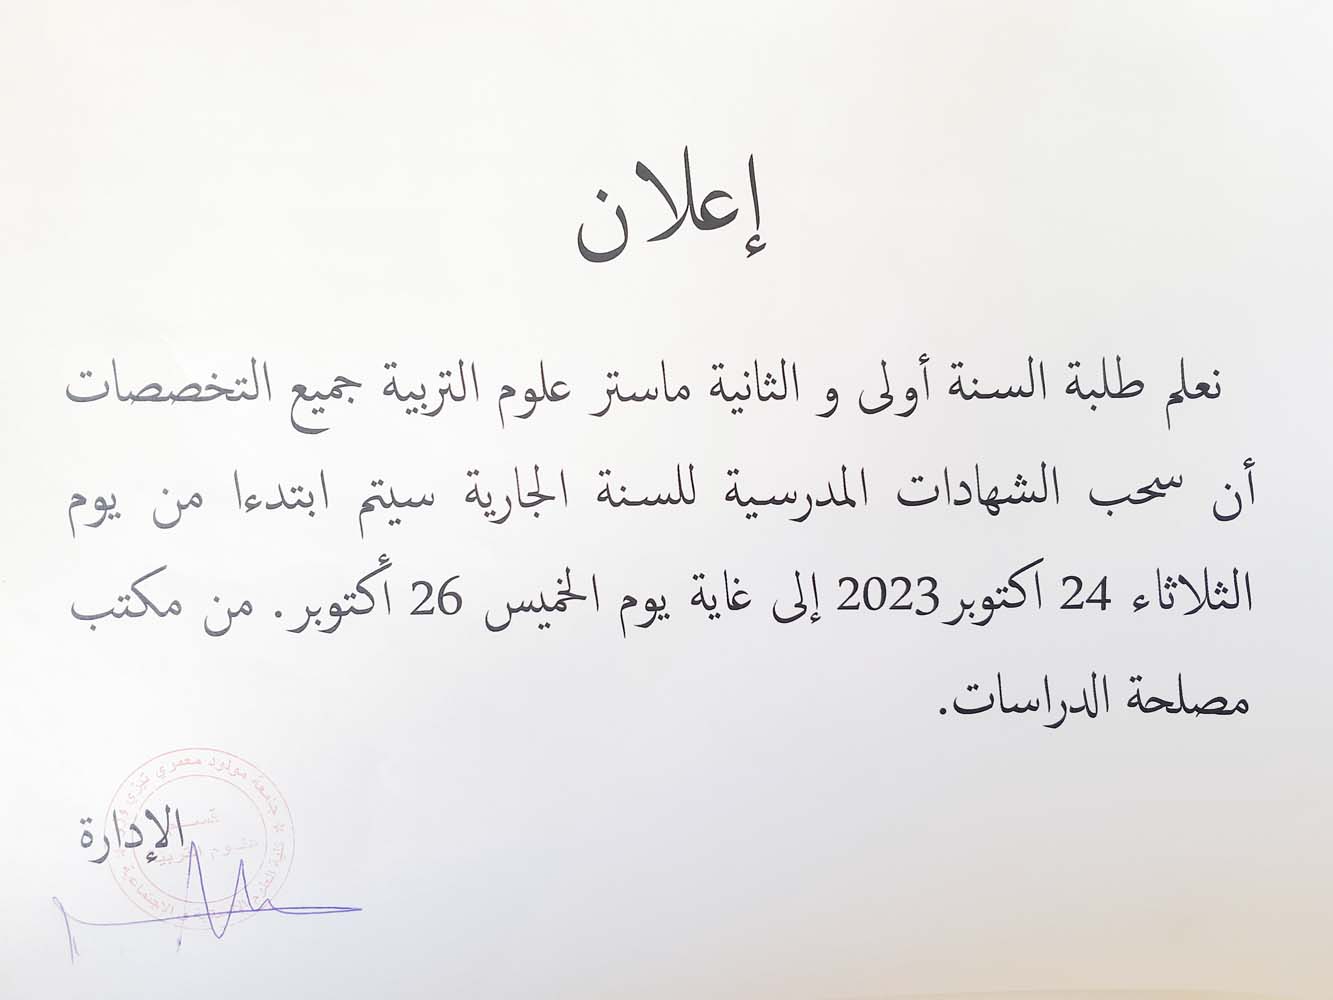 إعلان
نعلم طلبة السنة أولى و الثانية ماستر علوم التربية جميع التخصصات
أن سحب الشهادات المدرسية للسنة الجارية سيتم ابتدءا من يوم
الثلاثاء 24 اكتوبر2023 إلى غاية يوم الخميس 26 أكتوبر. من مكتب
مصلحة الدراسات.
الإدارة
جامعة مولود معمري تيزي وزو
قسم
علوم التربية
كلية العلوم الإنسانية و الاجتماعية